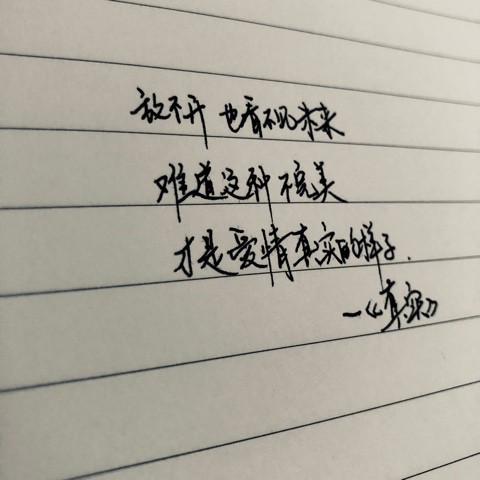 放不开 也看不见未来
难道这种不完美
才是爱情真实的样子.
—《真实》